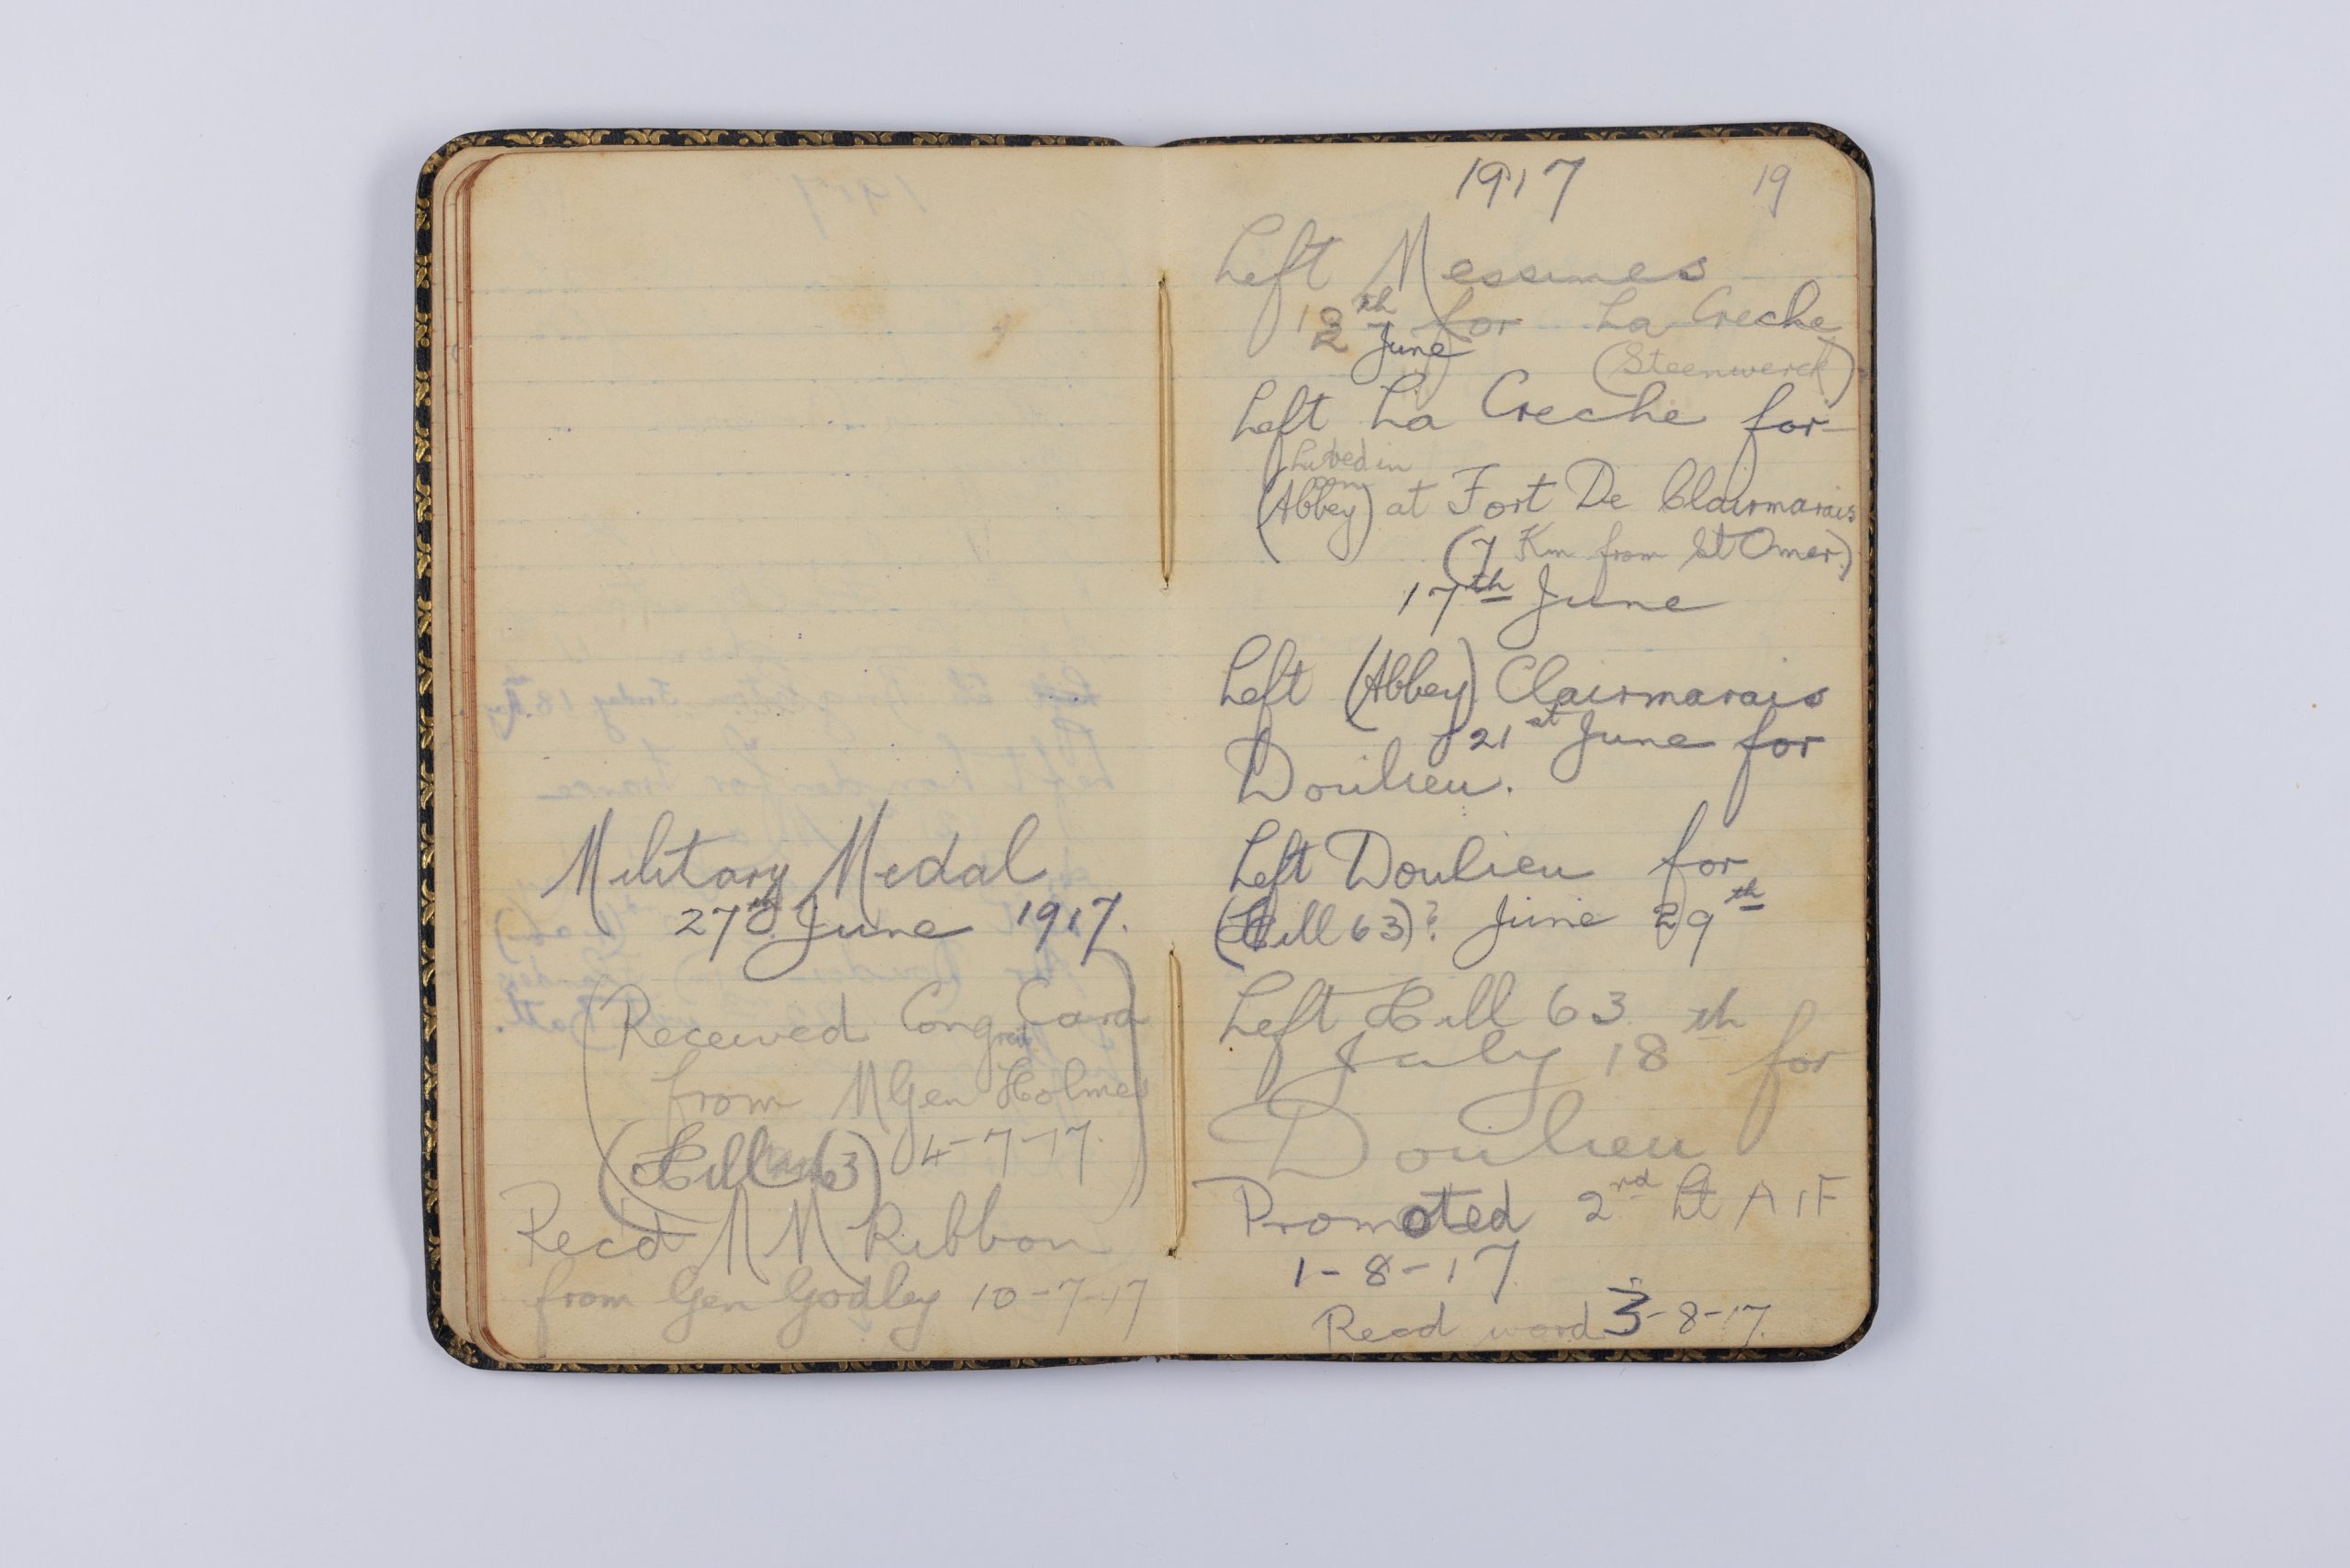 Military Medal
27th June 1917.
(Received Congrat Card
from M Gen Holmes
(Hill 63) 4-7-17.)
Recd M M Ribbon
from Gen Godley 10-7-17
1917 19
Left Messines
12th June for La Creche
(Steenwerck)
Left La Creche for
in
(Abbey) at Fort De Clairmarais
(7 Km from St Omer.)
17th June
Left (Abbey) Clairmarais
21st June for
Doulieu.
Left Doulieu for
(Hill 63)? June 29th
Left Hill 63
July 18th for
Doulieu
Promoted 2nd Lt A I F
1-8-17
Recd word 3-8-17.